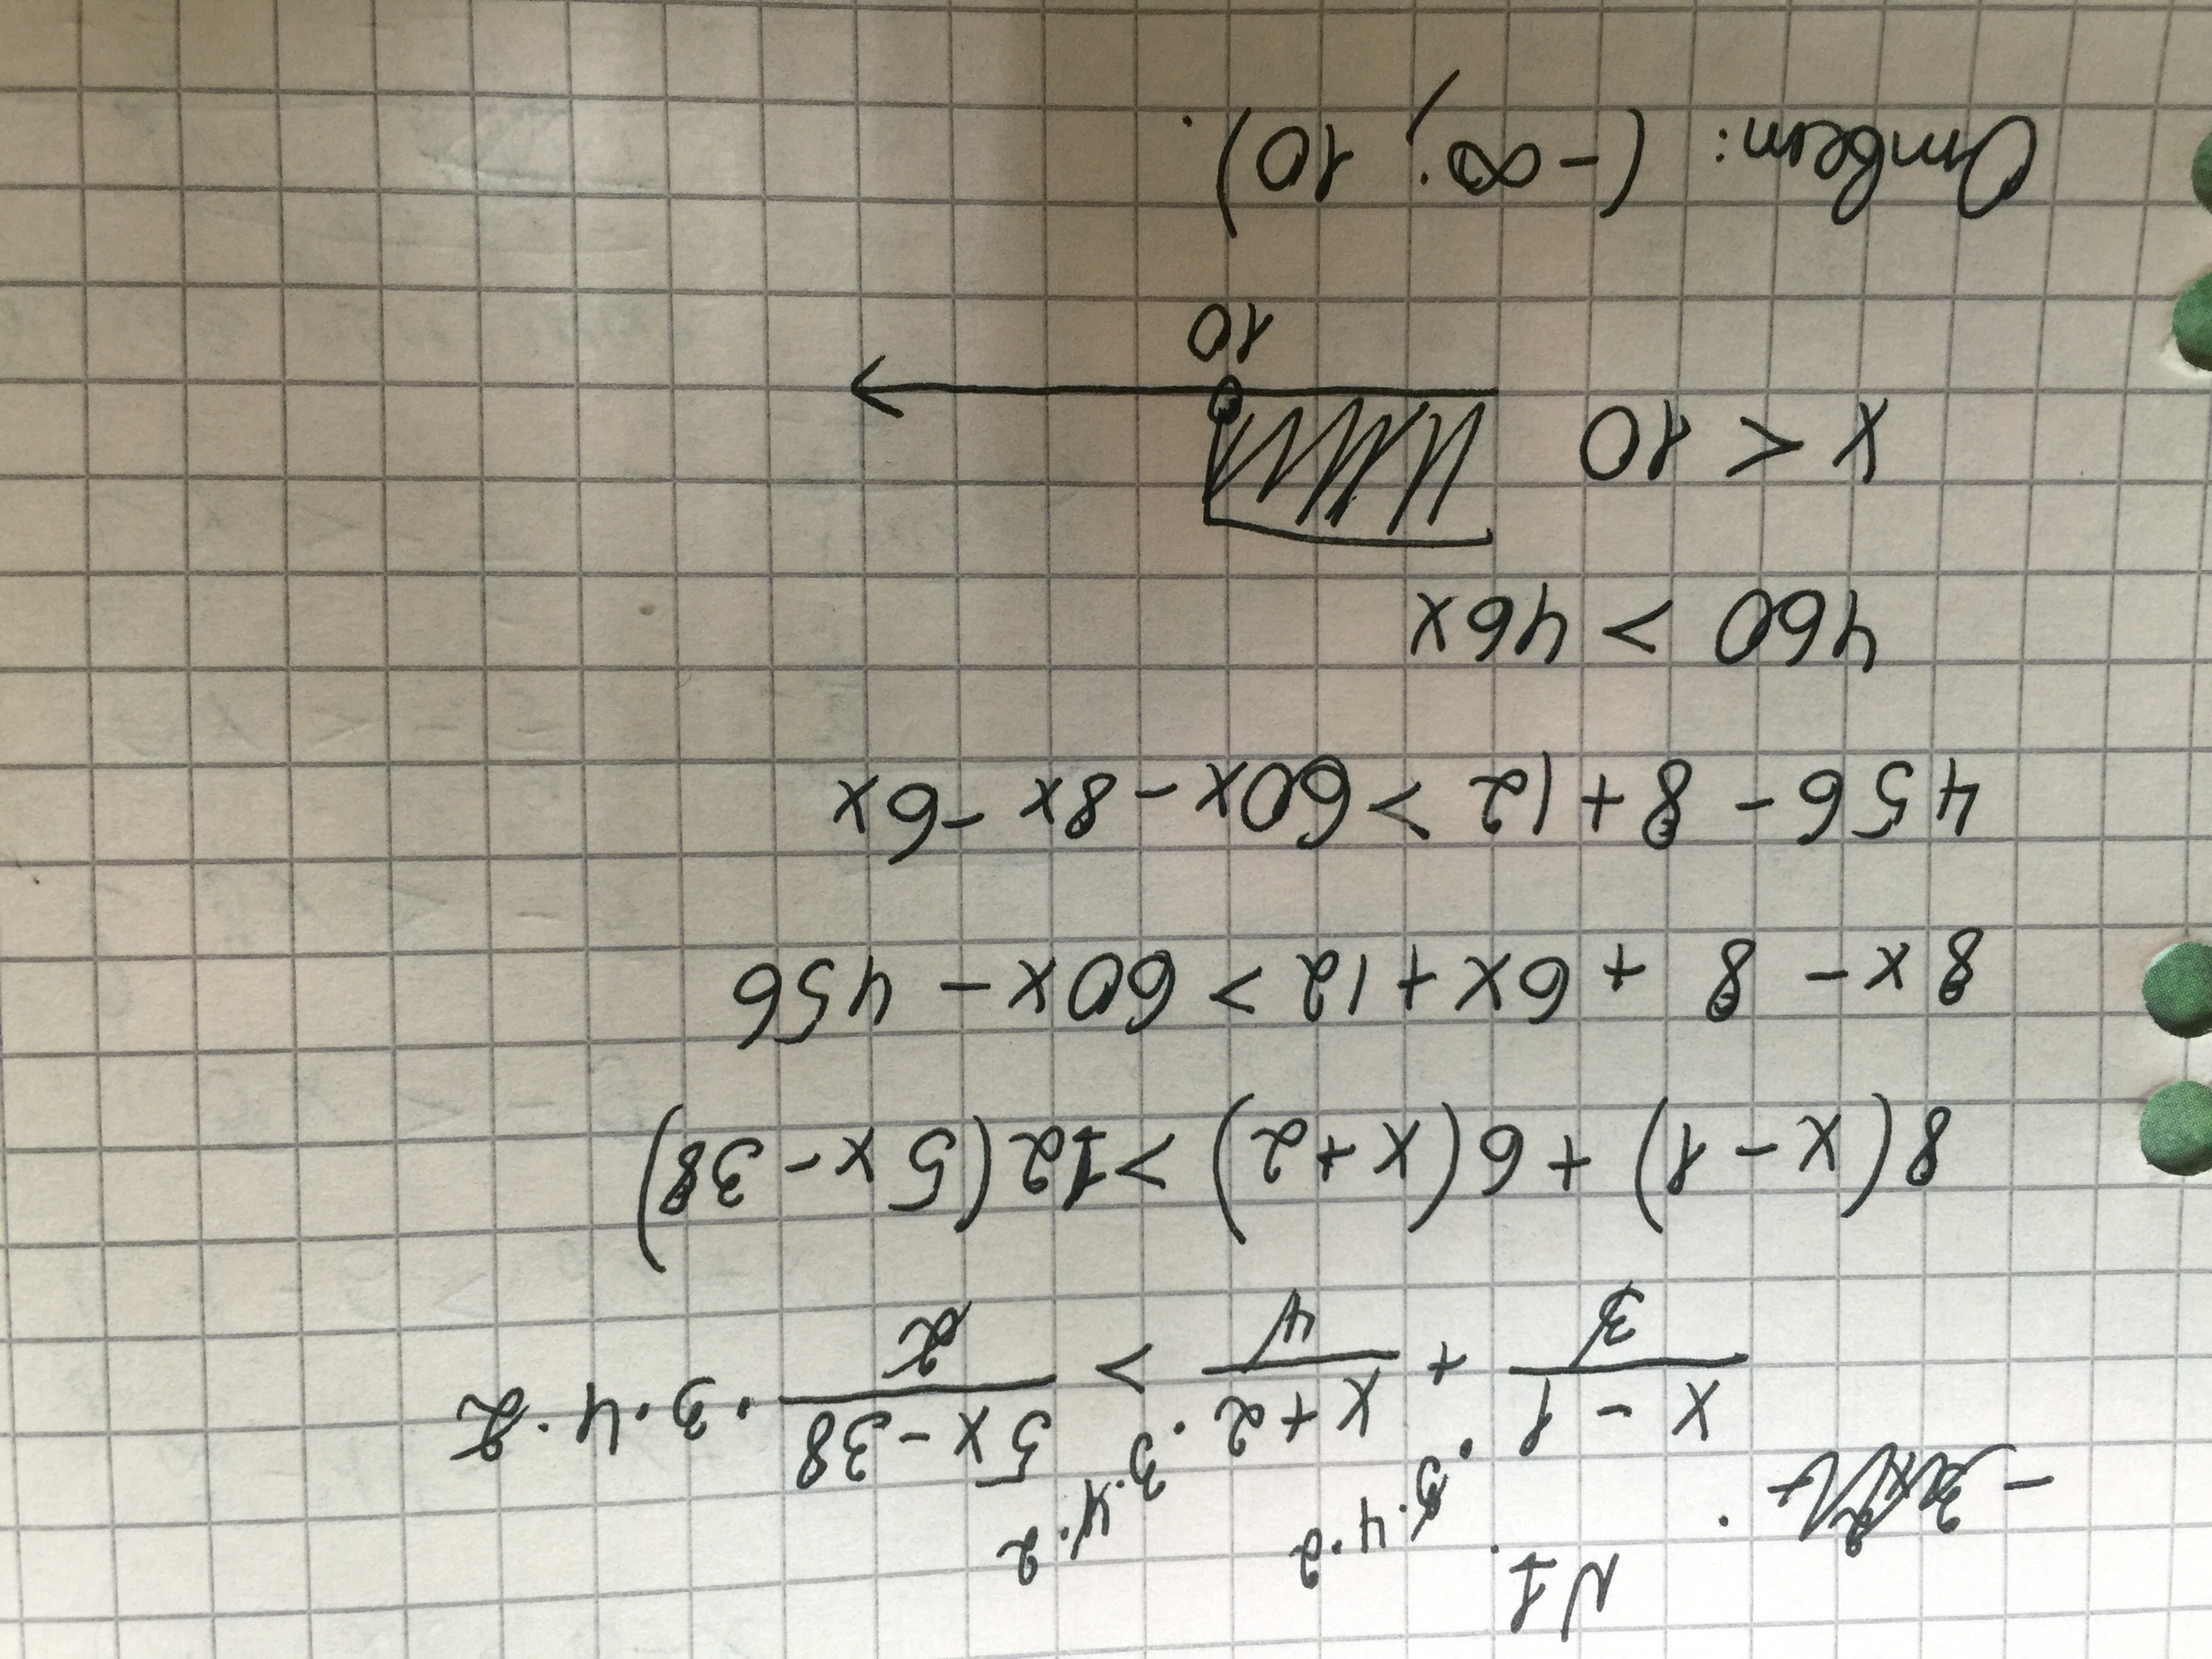 №1
· 3 · 4 · 2 · 3 · 4 · 2
x - 1 / 3 + x + 2 / 4 > 5x - 38 / 2 · 3 · 4 · 2
8(x - 1) + 6(x + 2) > 12(5x - 38)
8x - 8 + 6x + 12 > 60x - 456
456 - 8 + 12 > 60x - 8x - 6x
460 > 46x
x < 10
10
Ответ: (-∞; 10).